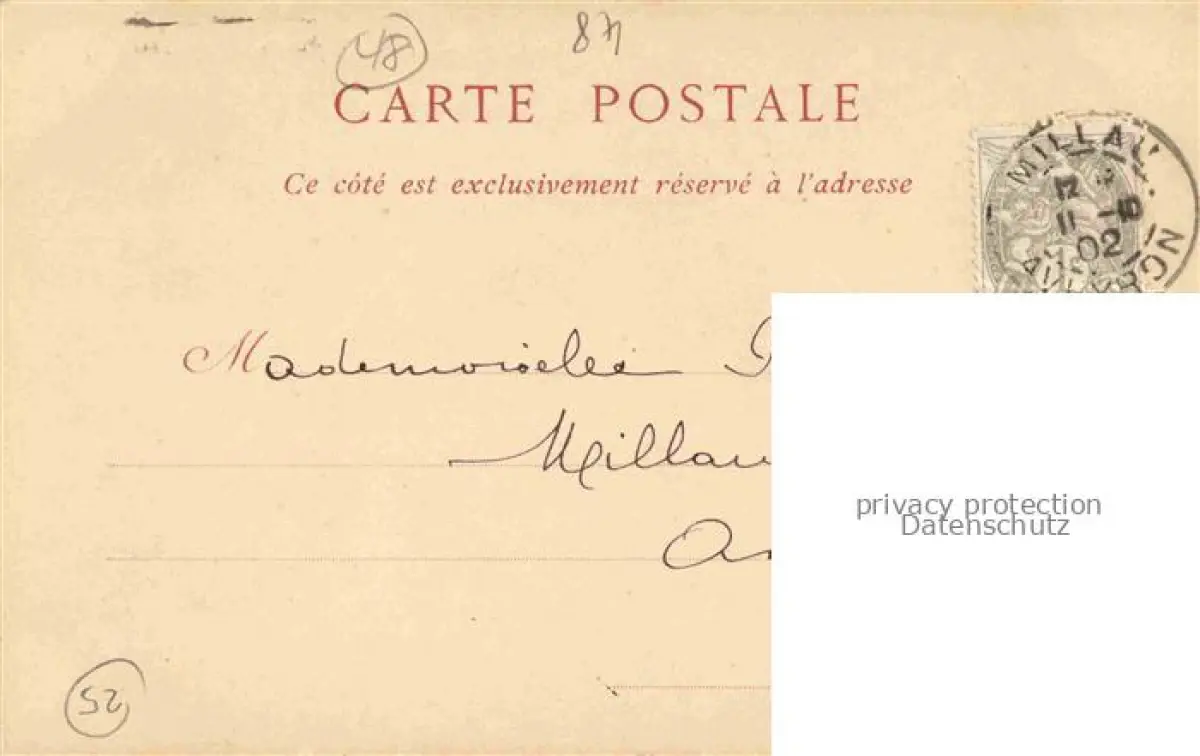 48
87
CARTE POSTALE
Ce côté est exclusivement réservé à l'adresse
MILLAU
02
AVEYRON
Mademoiselle
Millau
privacy protection
Datenschutz
52